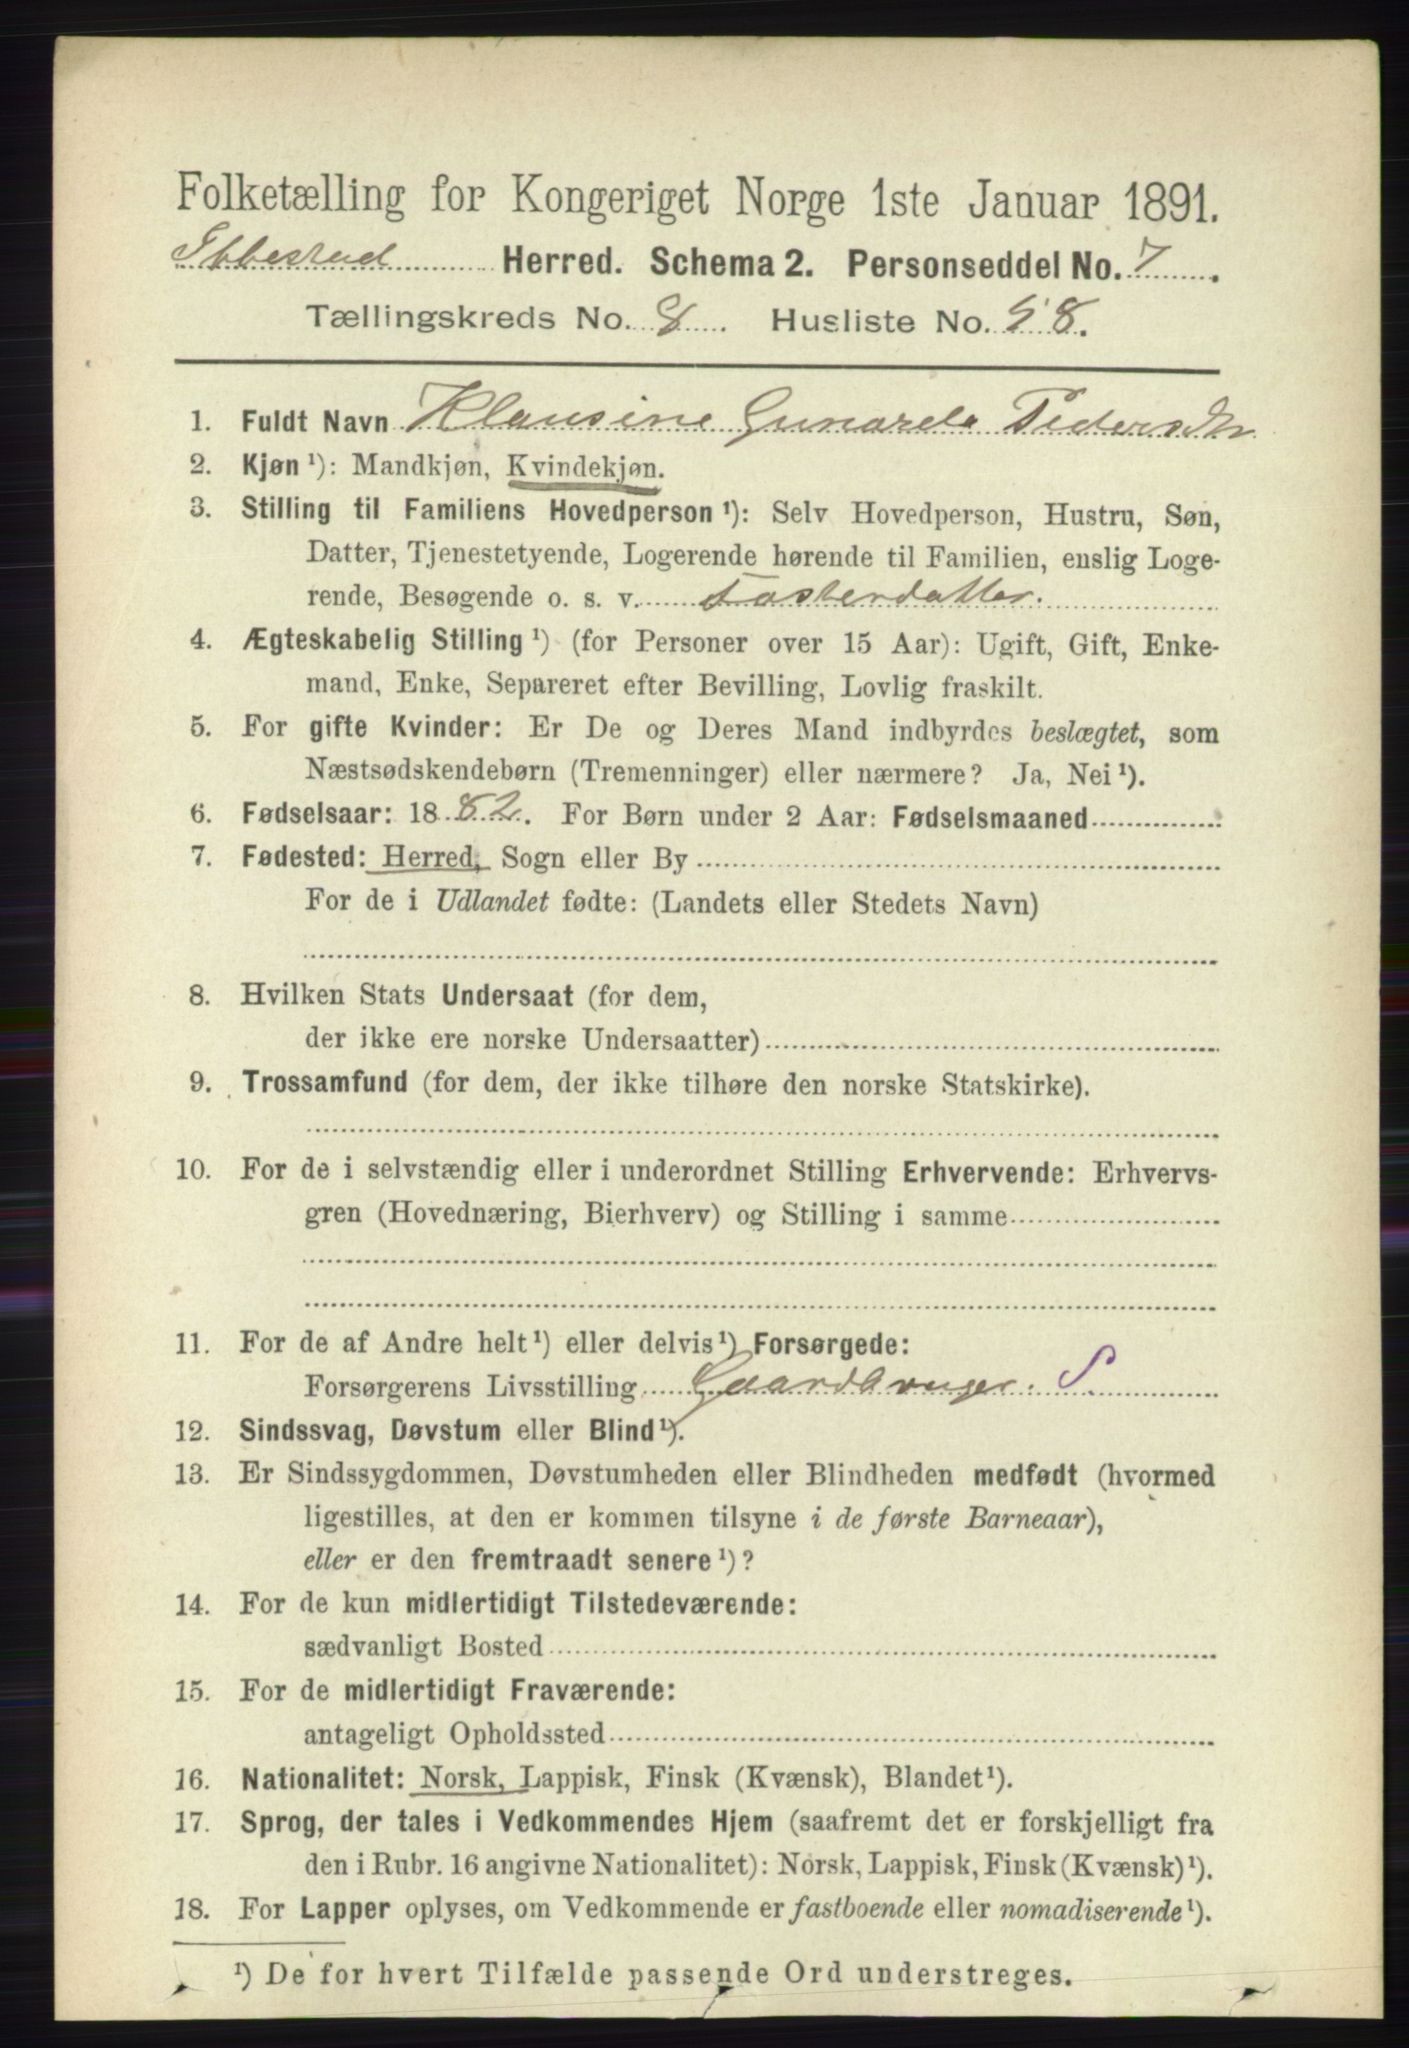 Folketælling for Kongeriget Norge 1ste Januar 1891.
Ibbestad Herred. Schema 2. Personseddel No. 7.
Tællingskreds No. 8. Husliste No. 58.
1. Fuldt Navn Klausine Gunarda Pedersdtr
2. Kjøn ¹): Mandkjøn, Kvindekjøn.
3. Stilling til Familiens Hovedperson ¹): Selv Hovedperson, Hustru, Søn,
Datter, Tjenestetyende, Logerende hørende til Familien, enslig Loge-
rende, Besøgende o. s. v. Fosterdatter.
4. Ægteskabelig Stilling ¹) (for Personer over 15 Aar): Ugift, Gift, Enke-
mand, Enke, Separeret efter Bevilling, Lovlig fraskilt.
5. For gifte Kvinder: Er De og Deres Mand indbyrdes beslægtet, som
Næstsødskendebørn (Tremenninger) eller nærmere? Ja, Nei ¹).
6. Fødselsaar: 1882. For Børn under 2 Aar: Fødselsmaaned
7. Fødested: Herred, Sogn eller By
For de i Udlandet fødte: (Landets eller Stedets Navn)
8. Hvilken Stats Undersaat (for dem,
der ikke ere norske Undersaatter)
9. Trossamfund (for dem, der ikke tilhøre den norske Statskirke).
10. For de i selvstændig eller i underordnet Stilling Erhvervende: Erhvervs-
gren (Hovednæring, Bierhverv) og Stilling i samme
11. For de af Andre helt ¹) eller delvis ¹) Forsørgede:
Forsørgerens Livsstilling Gaardbruger. S
12. Sindssvag, Døvstum eller Blind ¹).
13. Er Sindssygdommen, Døvstumheden eller Blindheden medfødt (hvormed
ligestilles, at den er kommen tilsyne i de første Barneaar),
eller er den fremtraadt senere ¹)?
14. For de kun midlertidigt Tilstedeværende:
sædvanligt Bosted
15. For de midlertidigt Fraværende:
antageligt Opholdssted
16. Nationalitet: Norsk, Lappisk, Finsk (Kvænsk), Blandet ¹).
17. Sprog, der tales i Vedkommendes Hjem (saafremt det er forskjelligt fra
den i Rubr. 16 angivne Nationalitet): Norsk, Lappisk, Finsk (Kvænsk) ¹).
18. For Lapper oplyses, om Vedkommende er fastboende eller nomadiserende ¹).
¹) De for hvert Tilfælde passende Ord understreges.